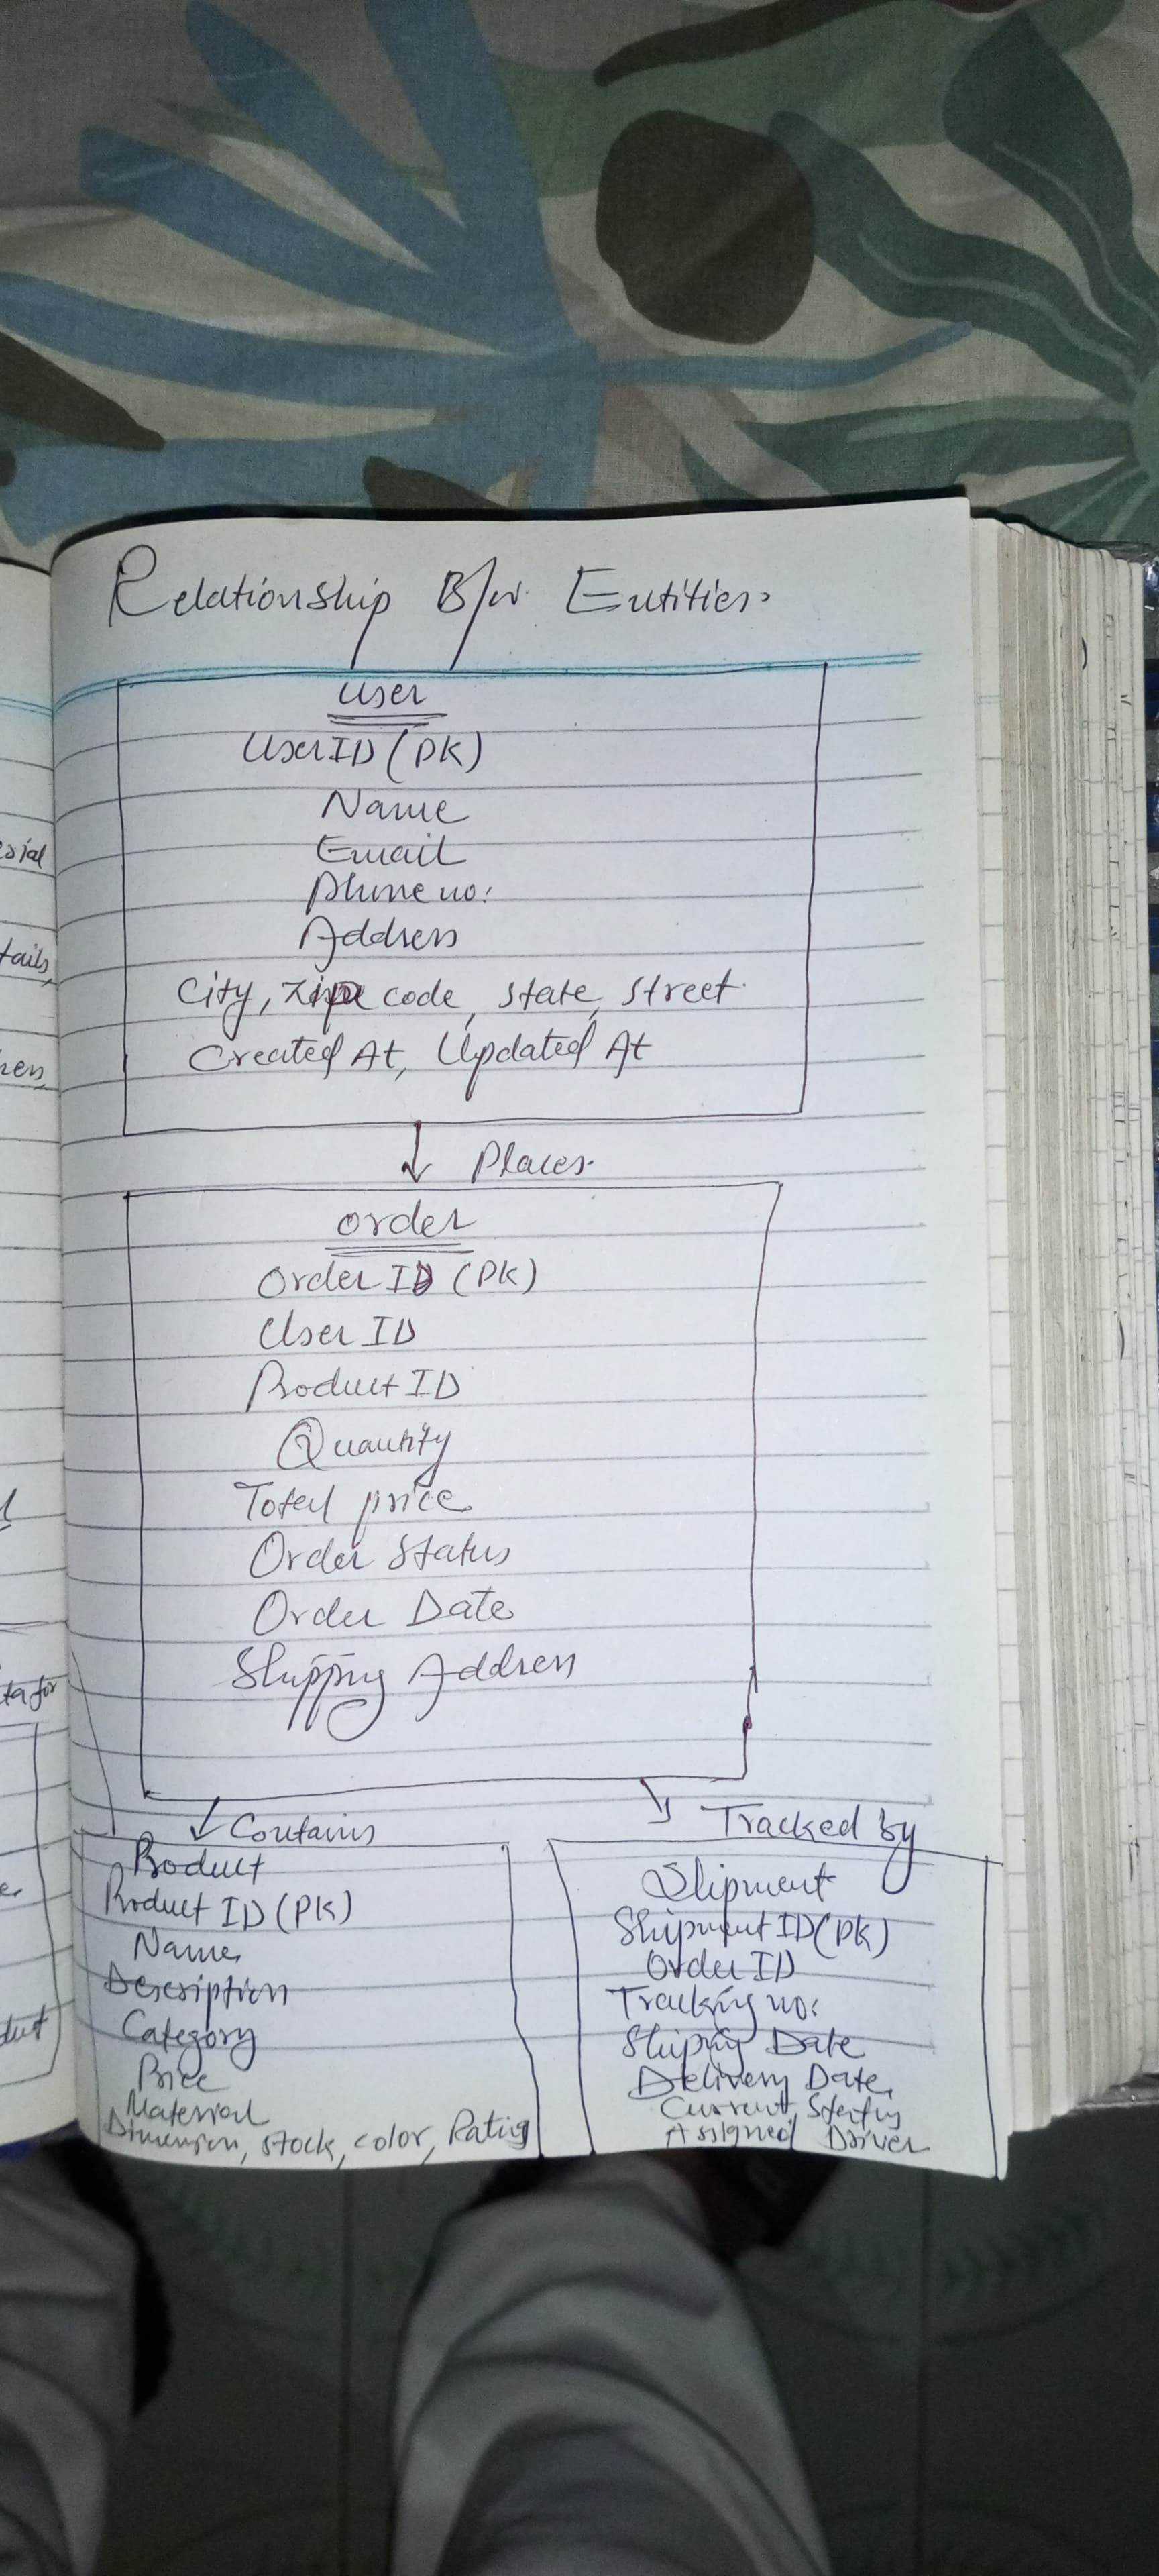 Relationship B/w Entities.
User
User ID (PK)
Name
Email
Phone no:
Address
City, Zip code, State, Street.
Created At, Updated At
Places.
Order
Order ID (PK)
User ID
Product ID
Quantity
Total price
Order Status
Order Date
Shipping Address
Contains
Product
Product ID (PK)
Name
Description
Category
Price
Material
Dimension, stock, color, Rating
Tracked by
Shipment
Shipment ID (PK)
Order ID
Tracking no:
Shiping Date
Delivery Date
Current
Assigned Driver